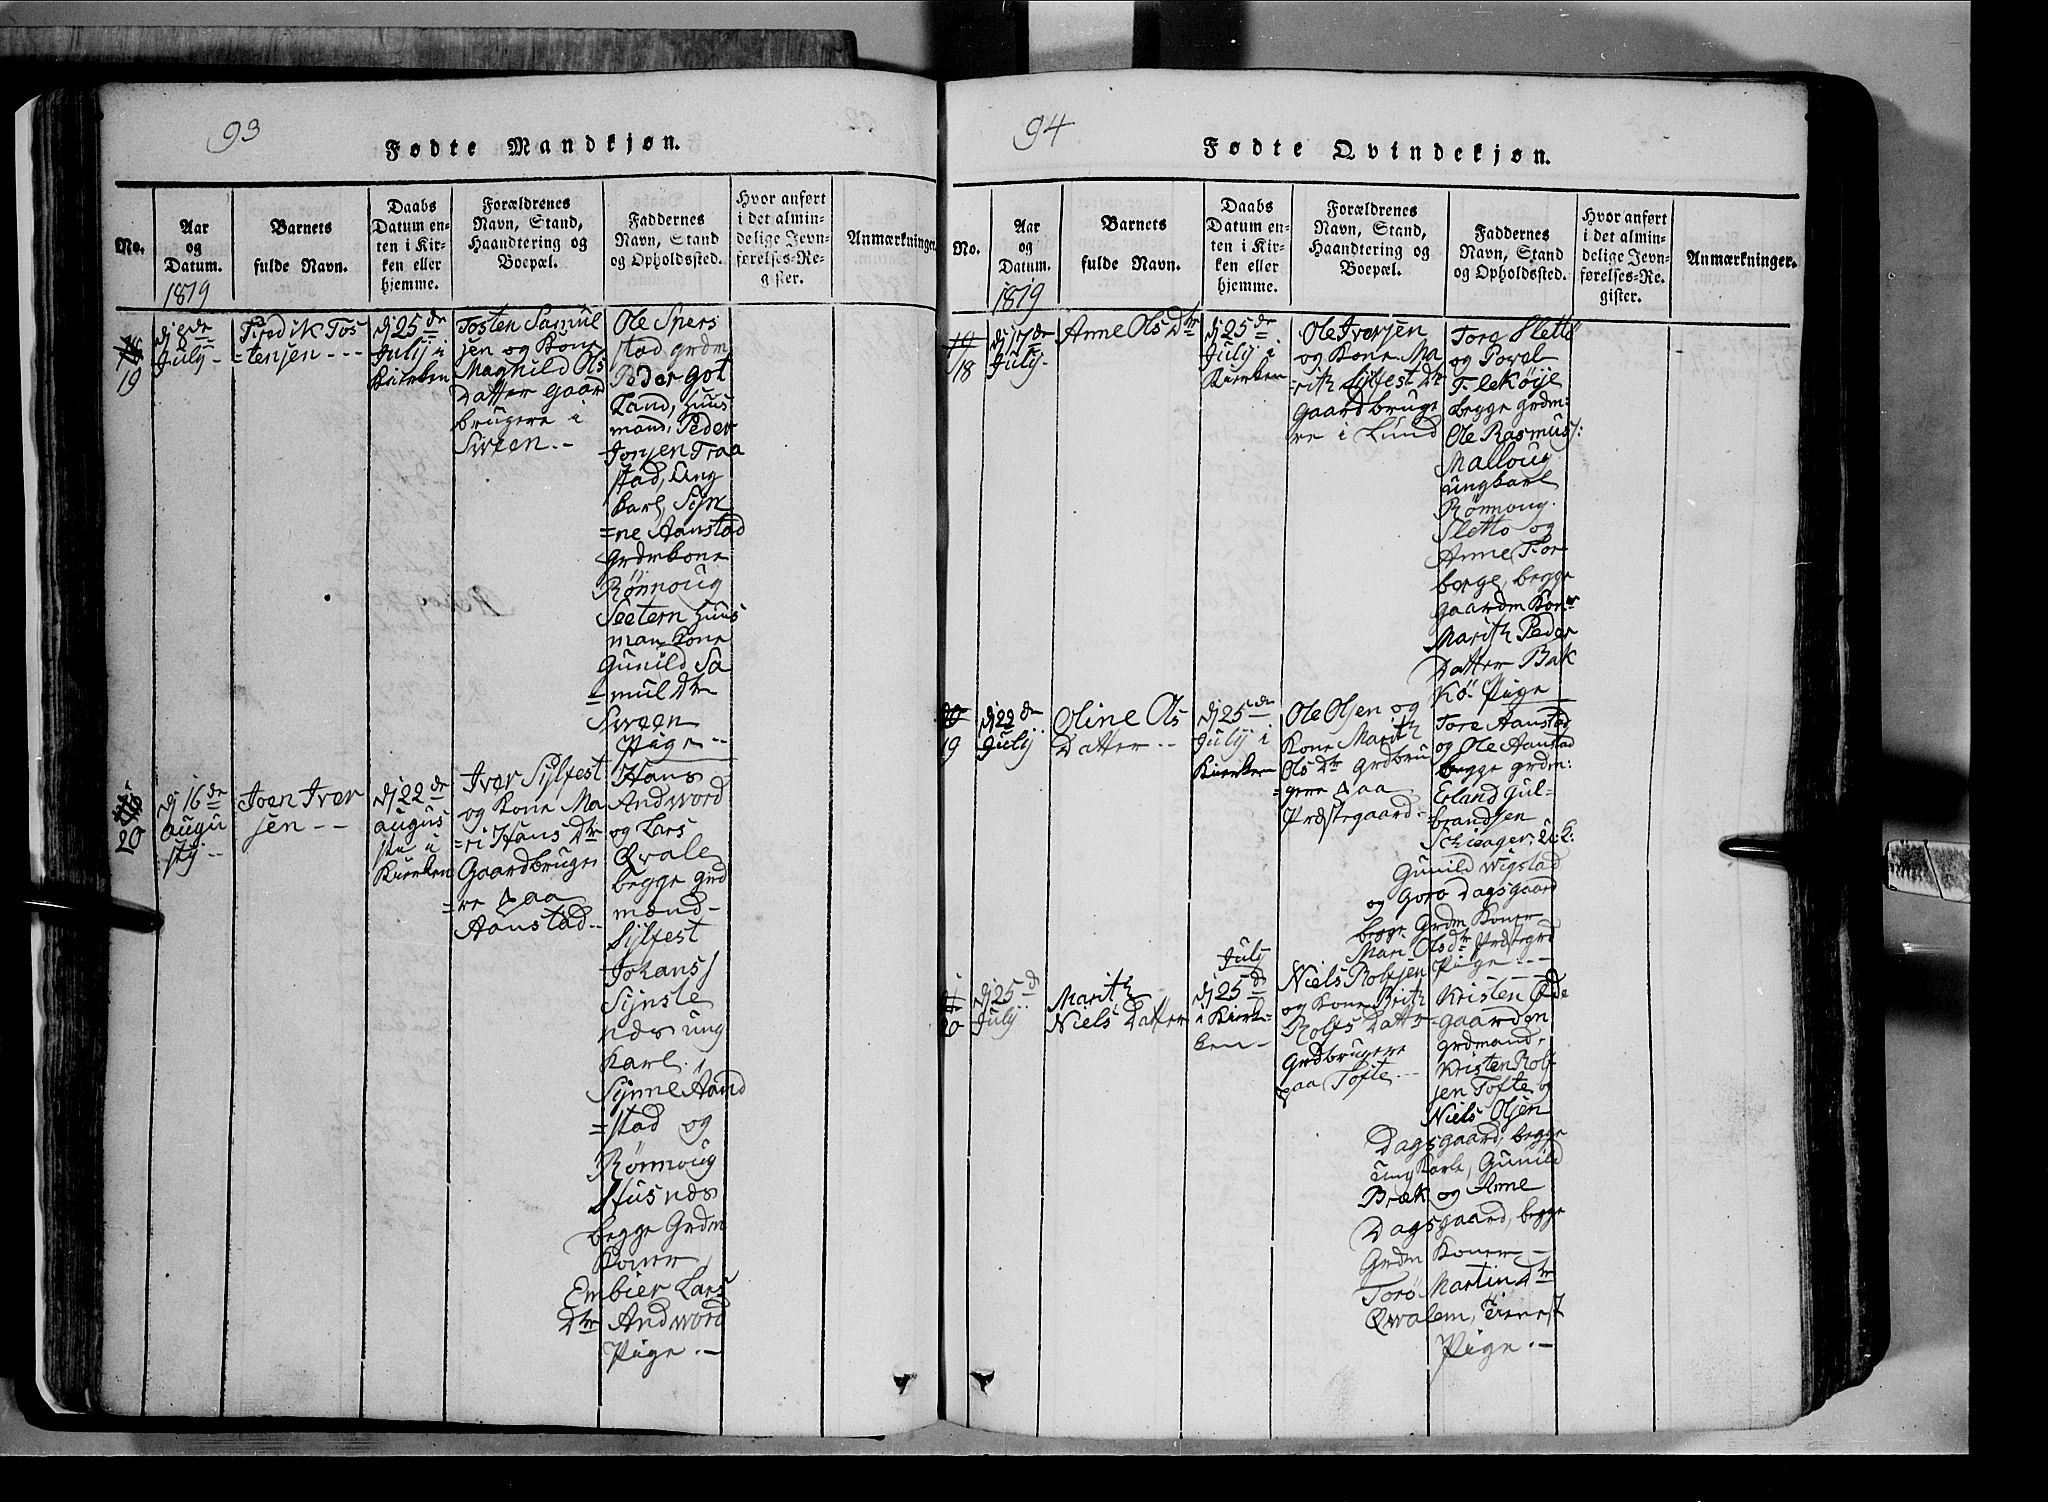 93
Fødte Mandkjøn.
No.
Aar
og
Datum.
1819
Barnets
fulde Navn.
Daabs
Datum en-
ten i Kir-
ken eller
hjemme.
Forældrenes
Navn, Stand,
Haandtering og
Boepæl.
Faddernes
Navn, Stand
og Opholdssted.
Hvor anført
i det almin-
delige Jevn-
førelses-Re-
gister.
Anmærkninger.
19
dj 8de
July -
Fredik Tos
=tensen - - -
dj 25de
July i
Kierken
Tosten Samul
sen og Kone
Maghild Ols
Datter Gaar
brugere i
Sween. -
Ole Spers
stad grdm
Peder Got
Land, Huus
mand, Peder
Jonsen Traa
stad, Ung
karl, Sÿn
=ne Aanstad
grdmkone
Rönnoug
Seetern Huus
man kone
Gunild Sa
=mul Dtr
Sween
Pige - -
20
dj 16de
augu
stj. -
Joen Iver
sen - -
dj 22de
augus
stu i
Kierken
Iver Sÿlfest
og Kone Ma
=ri Hans Dtr
Gaardbruge
=re paa
Aanstad -
Hans
Andword
og Lars
Qvale
begge grd
mænd -
Sÿlfest
Johanss
Sÿnste
nds ung
Karl,
Sÿnne Aand
=stad og
Rönnoug
Husnds
begge Grdm
Koner
Embier Lars
Dtr Andword
Pige. -
94
Fødte Qvindekjøn.
No.
Aar
og
Datum.
1819
Barnets
fulde Navn.
Daabs
Datum en-
ten i Kir-
ken eller
hjemme.
Forældrenes
Navn, Stand,
Haandtering og
Boepæl.
Faddernes
Navn, Stand
og Opholdssted.
Hvor anført
i det almin-
delige Jevn-
førelses-Re-
gister.
Anmærkninger.
18
dj 17de
July -
Anne Ols Dtr
dj 25de
July i
Kierken
Ole Iversen
og Kone Ma
=rith Sÿlfest Dtr
Gaardbruge
re i Lund
Tore Sletto
og Powel
Flekøÿe
begge grdm:
Ole Rasmuss:
Malloug
ungkarl
Rönnoug
Sletto og
Anne Tor
berge, begge
gaardm Koner
Marith Peder
Datter Bak
Kö. Pige
19
dj 22de
July
Oline Ols
Datter - -
dj 25de
July i
Kierken
Ole Olsen og
Kone Marith
Ols Dtr Grdbru
=gere paa
Præstegaard -
Tore Aanstad
og Ole Aanstad
begge grdm:
Erland Gul-
brandsen
Schieager, U: K:
Gunild Wigstad
og Goro Dagsgaard
begge Grdm Koner -
Mari Olsdtr Præstegrd
Pige - - -
20
dj 25d
July
Marith
Niels Datter
July
dj 25d
i Kierk-
ken -
Niels Rolfsen
og Kone Brith
Rolfs Datter
Grdbrugere
paa Tofte - -
Kristen Øde
=gaarden
grdmand,
Kristen Rolf
sen Tofte og
Niels Olsen
Dagsgaard, begge
ung Karle, Gunild
Bræk og Anne
Dagsgaard, begge
Grdm Koner -
Torö Martin Dtr
Qwalem, Tienest
Pige. -